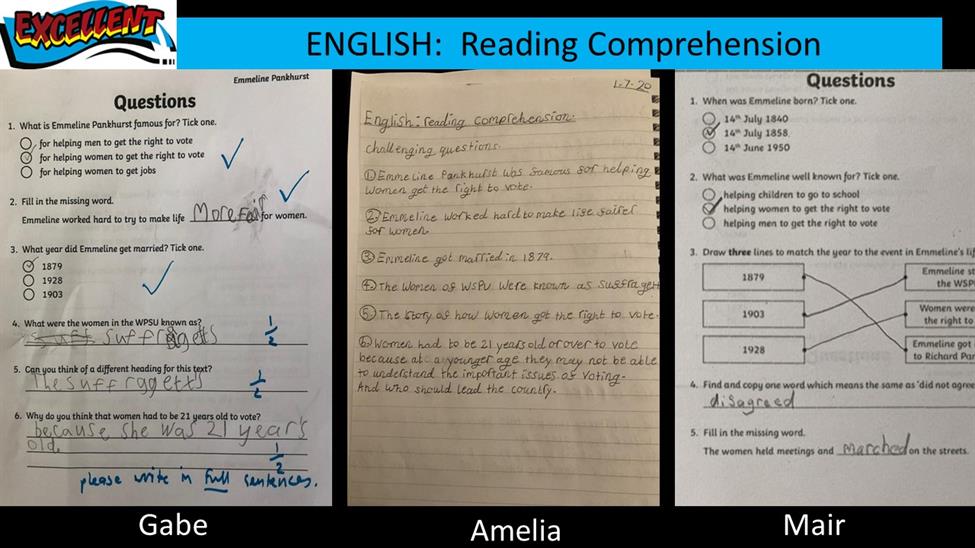 EXCELLENT
ENGLISH: Reading Comprehension
Emmeline Pankhurst
Questions
1. What is Emmeline Pankhurst famous for? Tick one.
for helping men to get the right to vote
for helping women to get the right to vote
for helping women to get jobs
2. Fill in the missing word.
Emmeline worked hard to try to make life More fair for women.
3. What year did Emmeline get married? Tick one.
1879
1928
1903
4. What were the women in the WPSU known as?
suffragetts
1/2
5. Can you think of a different heading for this text?
The suffragetts
1/2
6. Why do you think that women had to be 21 years old to vote?
because she was 21 years
old.
1/2
please write in full sentences.
Gabe
1.7.20
English: reading comprehension.
Challenging questions.
① Emmeline Pankhurst was famous for helping
women get the right to vote.
② Emmeline worked hard to make life fairer
for women.
③ Emmeline got married in 1879.
④ The women of WSPU were known as suffragett
⑤ The story of how women got the right to vote.
⑥ Women had to be 21 years old or over to vote
because at a younger age they may not be able
to understand the important issues of voting.
And who should lead the country.
Amelia
Questions
1. When was Emmeline born? Tick one.
14th July 1840
14th July 1858
14th June 1950
2. What was Emmeline well known for? Tick one.
helping children to go to school
helping women to get the right to vote
helping men to get the right to vote
3. Draw three lines to match the year to the event in Emmeline's lif
1879
Emmeline st
the WSP
1903
Women were
the right to
1928
Emmeline got
to Richard Pan
4. Find and copy one word which means the same as 'did not agree
disagreed
5. Fill in the missing word.
The women held meetings and marched on the streets.
Mair